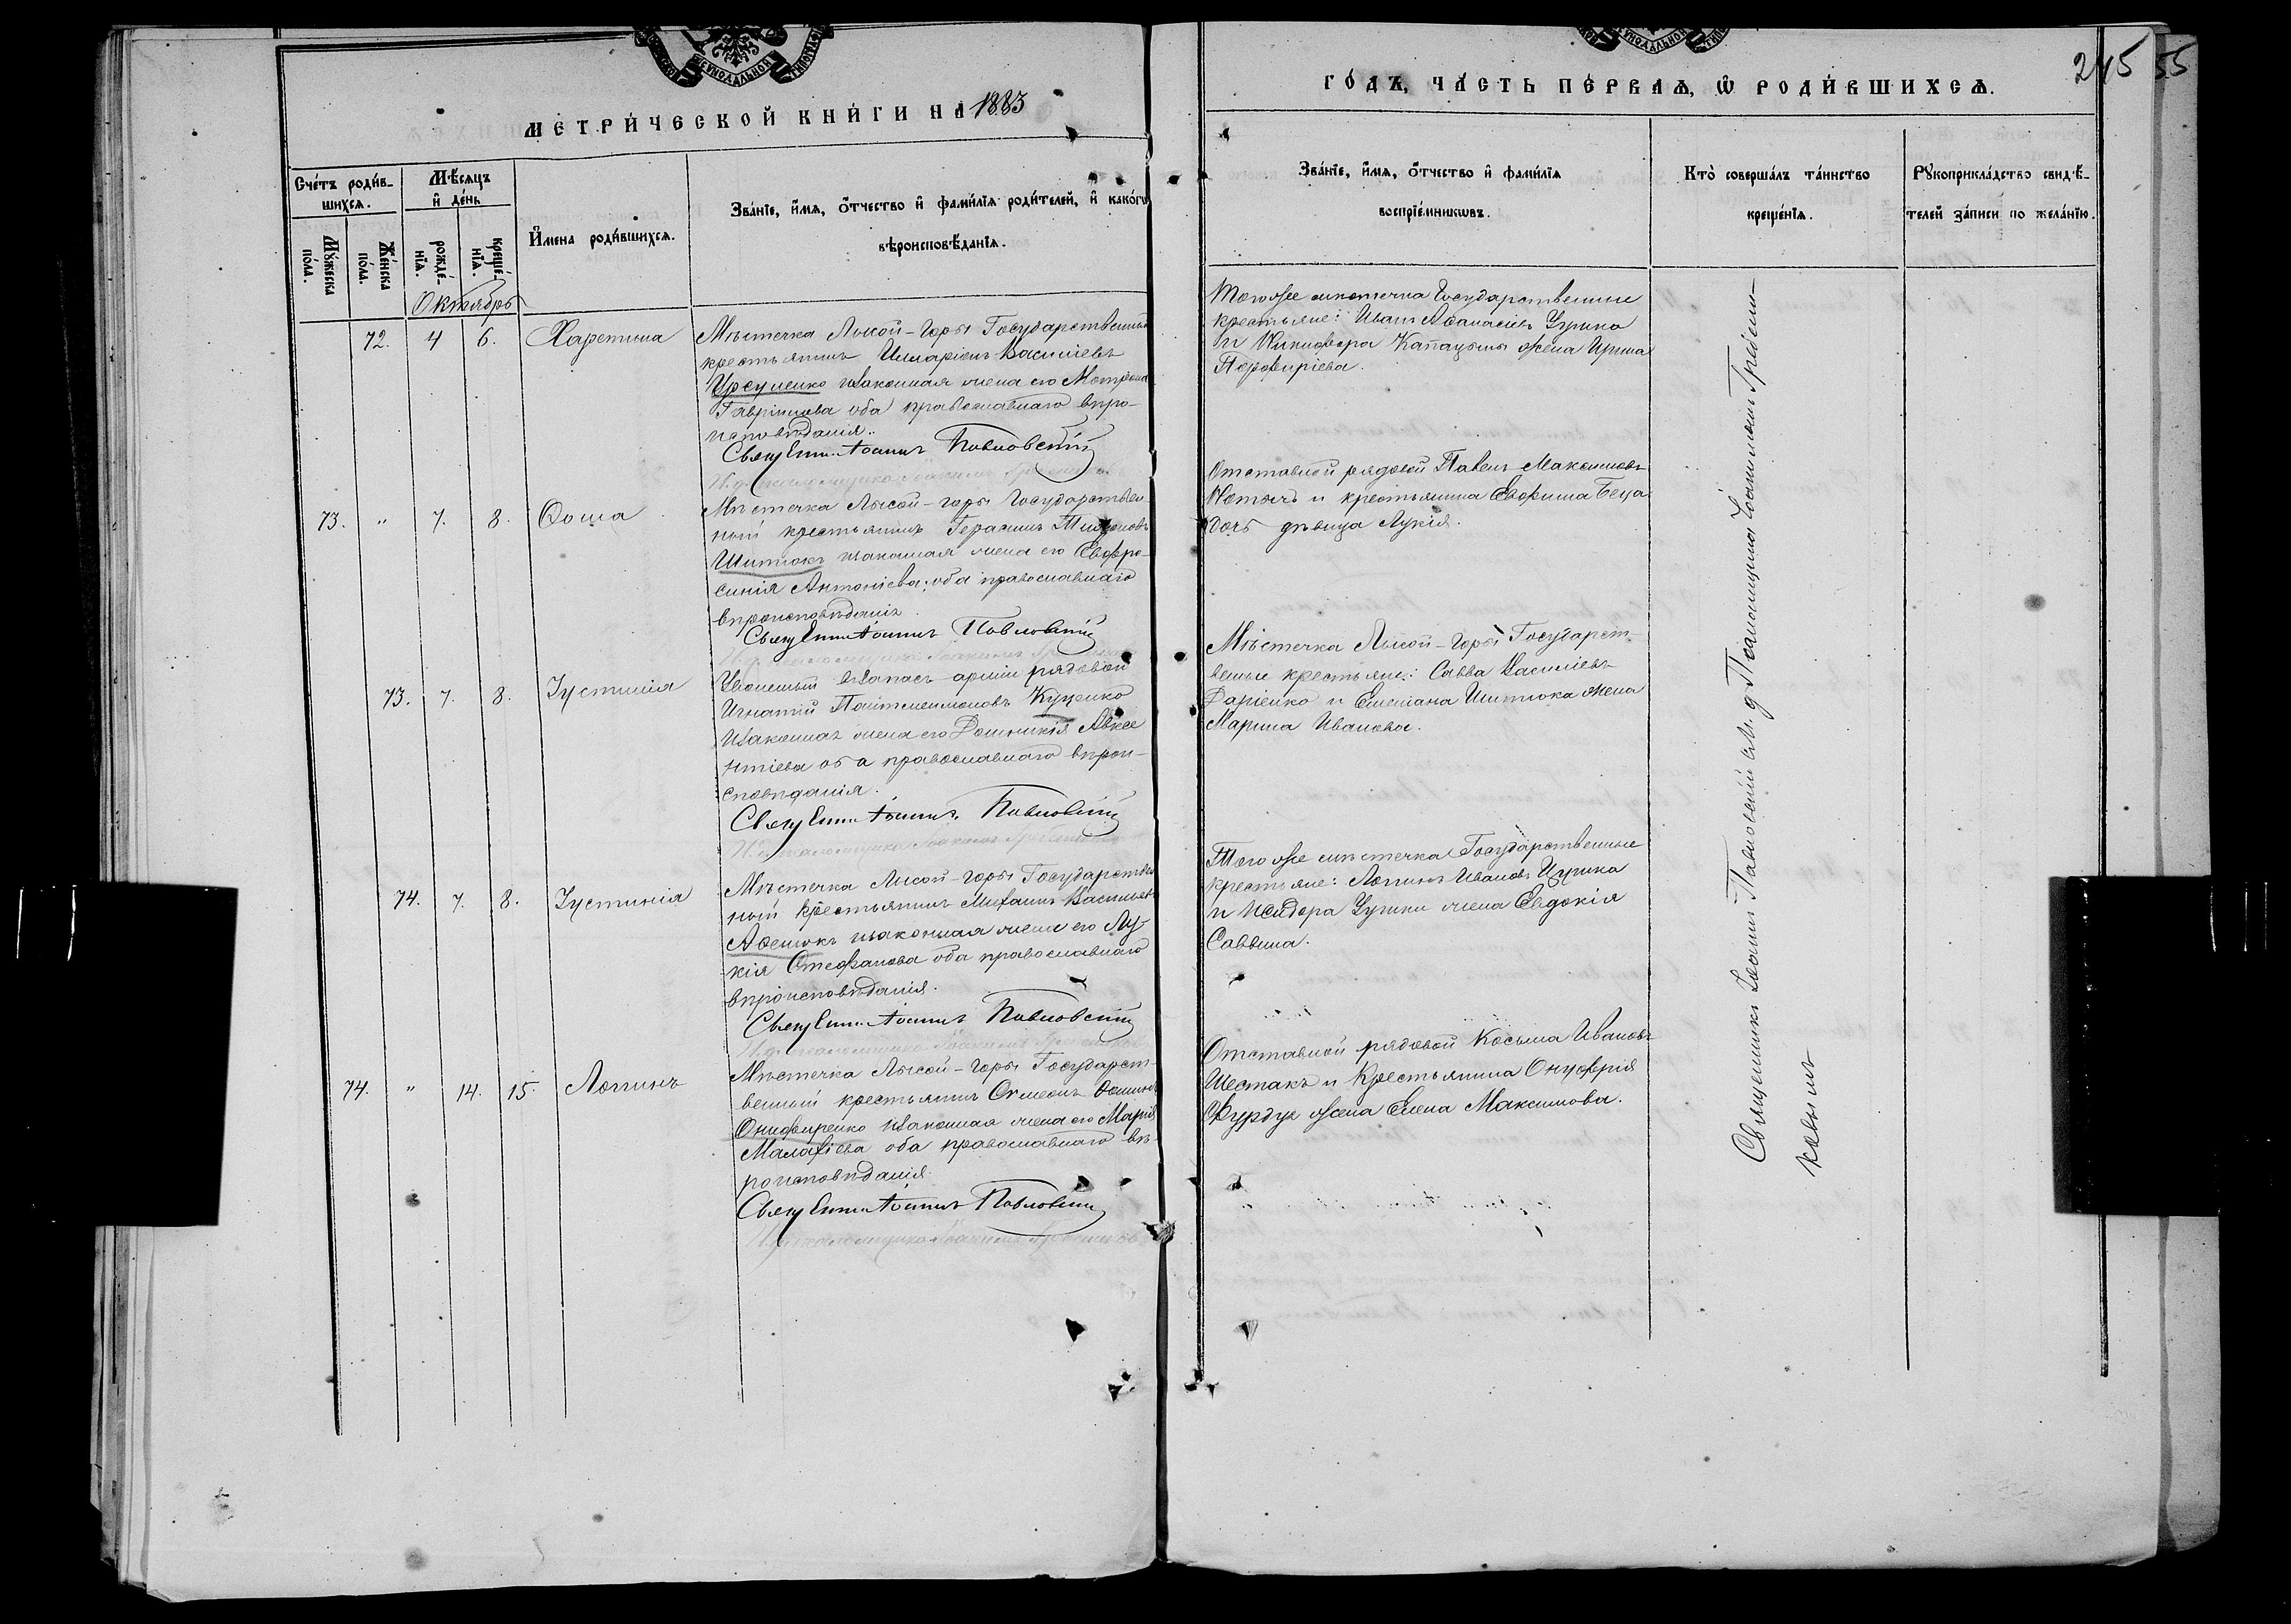 МЕТРИЧЕСКОЙ КНИГИ НА 1883
ГОДЪ, ЧАСТЬ ПЕРВАЯ, Ѿ РОДИВШИХСЯ.
245 55
Счетъ родив-
шихся.
Мѣсяцъ
и день
Мужеска
пола.
Женска
пола.
рожде-
нія.
креще-
нія.
Имена родившихся.
Званіе, имя, отчество и фамилія родителей, и какогѡ
вѣроисповѣданія.
Званіе, имя, отчество и фамилія
воспріемникѡвъ.
Кто совершалъ таинство
крещенія.
Рукоприкладство свидѣ-
телей записи по желанію.
Октябрь
72. 4 6. Харитина
Мѣстечка Лысой-Горы Государственный
крестьянинъ Илларіонъ Василіевъ
Урсуленко изаконная жена его Матрона
Гавріилова оба православнаго вѣро-
исповѣданія.
Священникъ Іоаннъ Павловскій
Тогоже мѣстечка Государственные
крестьяне: Иванъ Афанасіевъ Цуркан
и Никифора Капацыны жена Ирина
Порфиріева.
73. " 7. 8. Ѳома
Мѣстечка Лысой-горы Государствен-
ный крестьянинъ Герасимъ Тихоновъ
Шитюкъ изаконная жена его Евфро-
синія Антоніева; оба православнаго
вѣроисповѣданія
Священникъ Іоаннъ Павловскій
Отставной рядовой Павелъ Максимовъ
и крестьянина Евфима Беца
дочь дѣвица Лукія.
73. 7. 8. Іустинія
Уволенный взапасъ арміи рядовой
Игнатій Пантелеимоновъ Куценко
Изаконная жена его Домникія Авксе
нтіева оба православнаго вѣрои-
сповѣданія.
Священникъ Іоаннъ Павловскій
Мѣстечка Лысой-горы Государст-
венные крестьяне: Савва Василіевъ
Даріенко и Емеліана Шитюка жена
Марина Иванова.
74. 7. 8. Іустинія
Мѣстечка Лысой-Горы Государствен
ный крестьянинъ Михаилъ Васильевъ
Аксенюкъ изаконная жена его Лу-
кія Стефанова оба православнаго
вѣроисповѣданія.
Священникъ Іоаннъ Павловскій
Того же мѣстечка Государственные
крестьяне: Логинъ Ивановъ Цурка
и Исидора Цурки жена Евдокія
Саввина.
74. " 14. 15. Логинъ
Мѣстечка Лысой-Горы Государст-
венный крестьянинъ Симеонъ Ѳоминъ
Онифиренко изаконная жена его Марія
Малафіева оба православнаго вѣ-
роисповѣданія.
Священникъ Іоаннъ Павловскій
Отставной рядовой Косьма Ивановъ
Шестакъ и Крестьянина Онуфрія
Фурдуя жена Елена Максимова.
Священникъ Іоаннъ Павловскій съ И. д. Псаломщика Іоакимомъ Гребени-
ковымъ